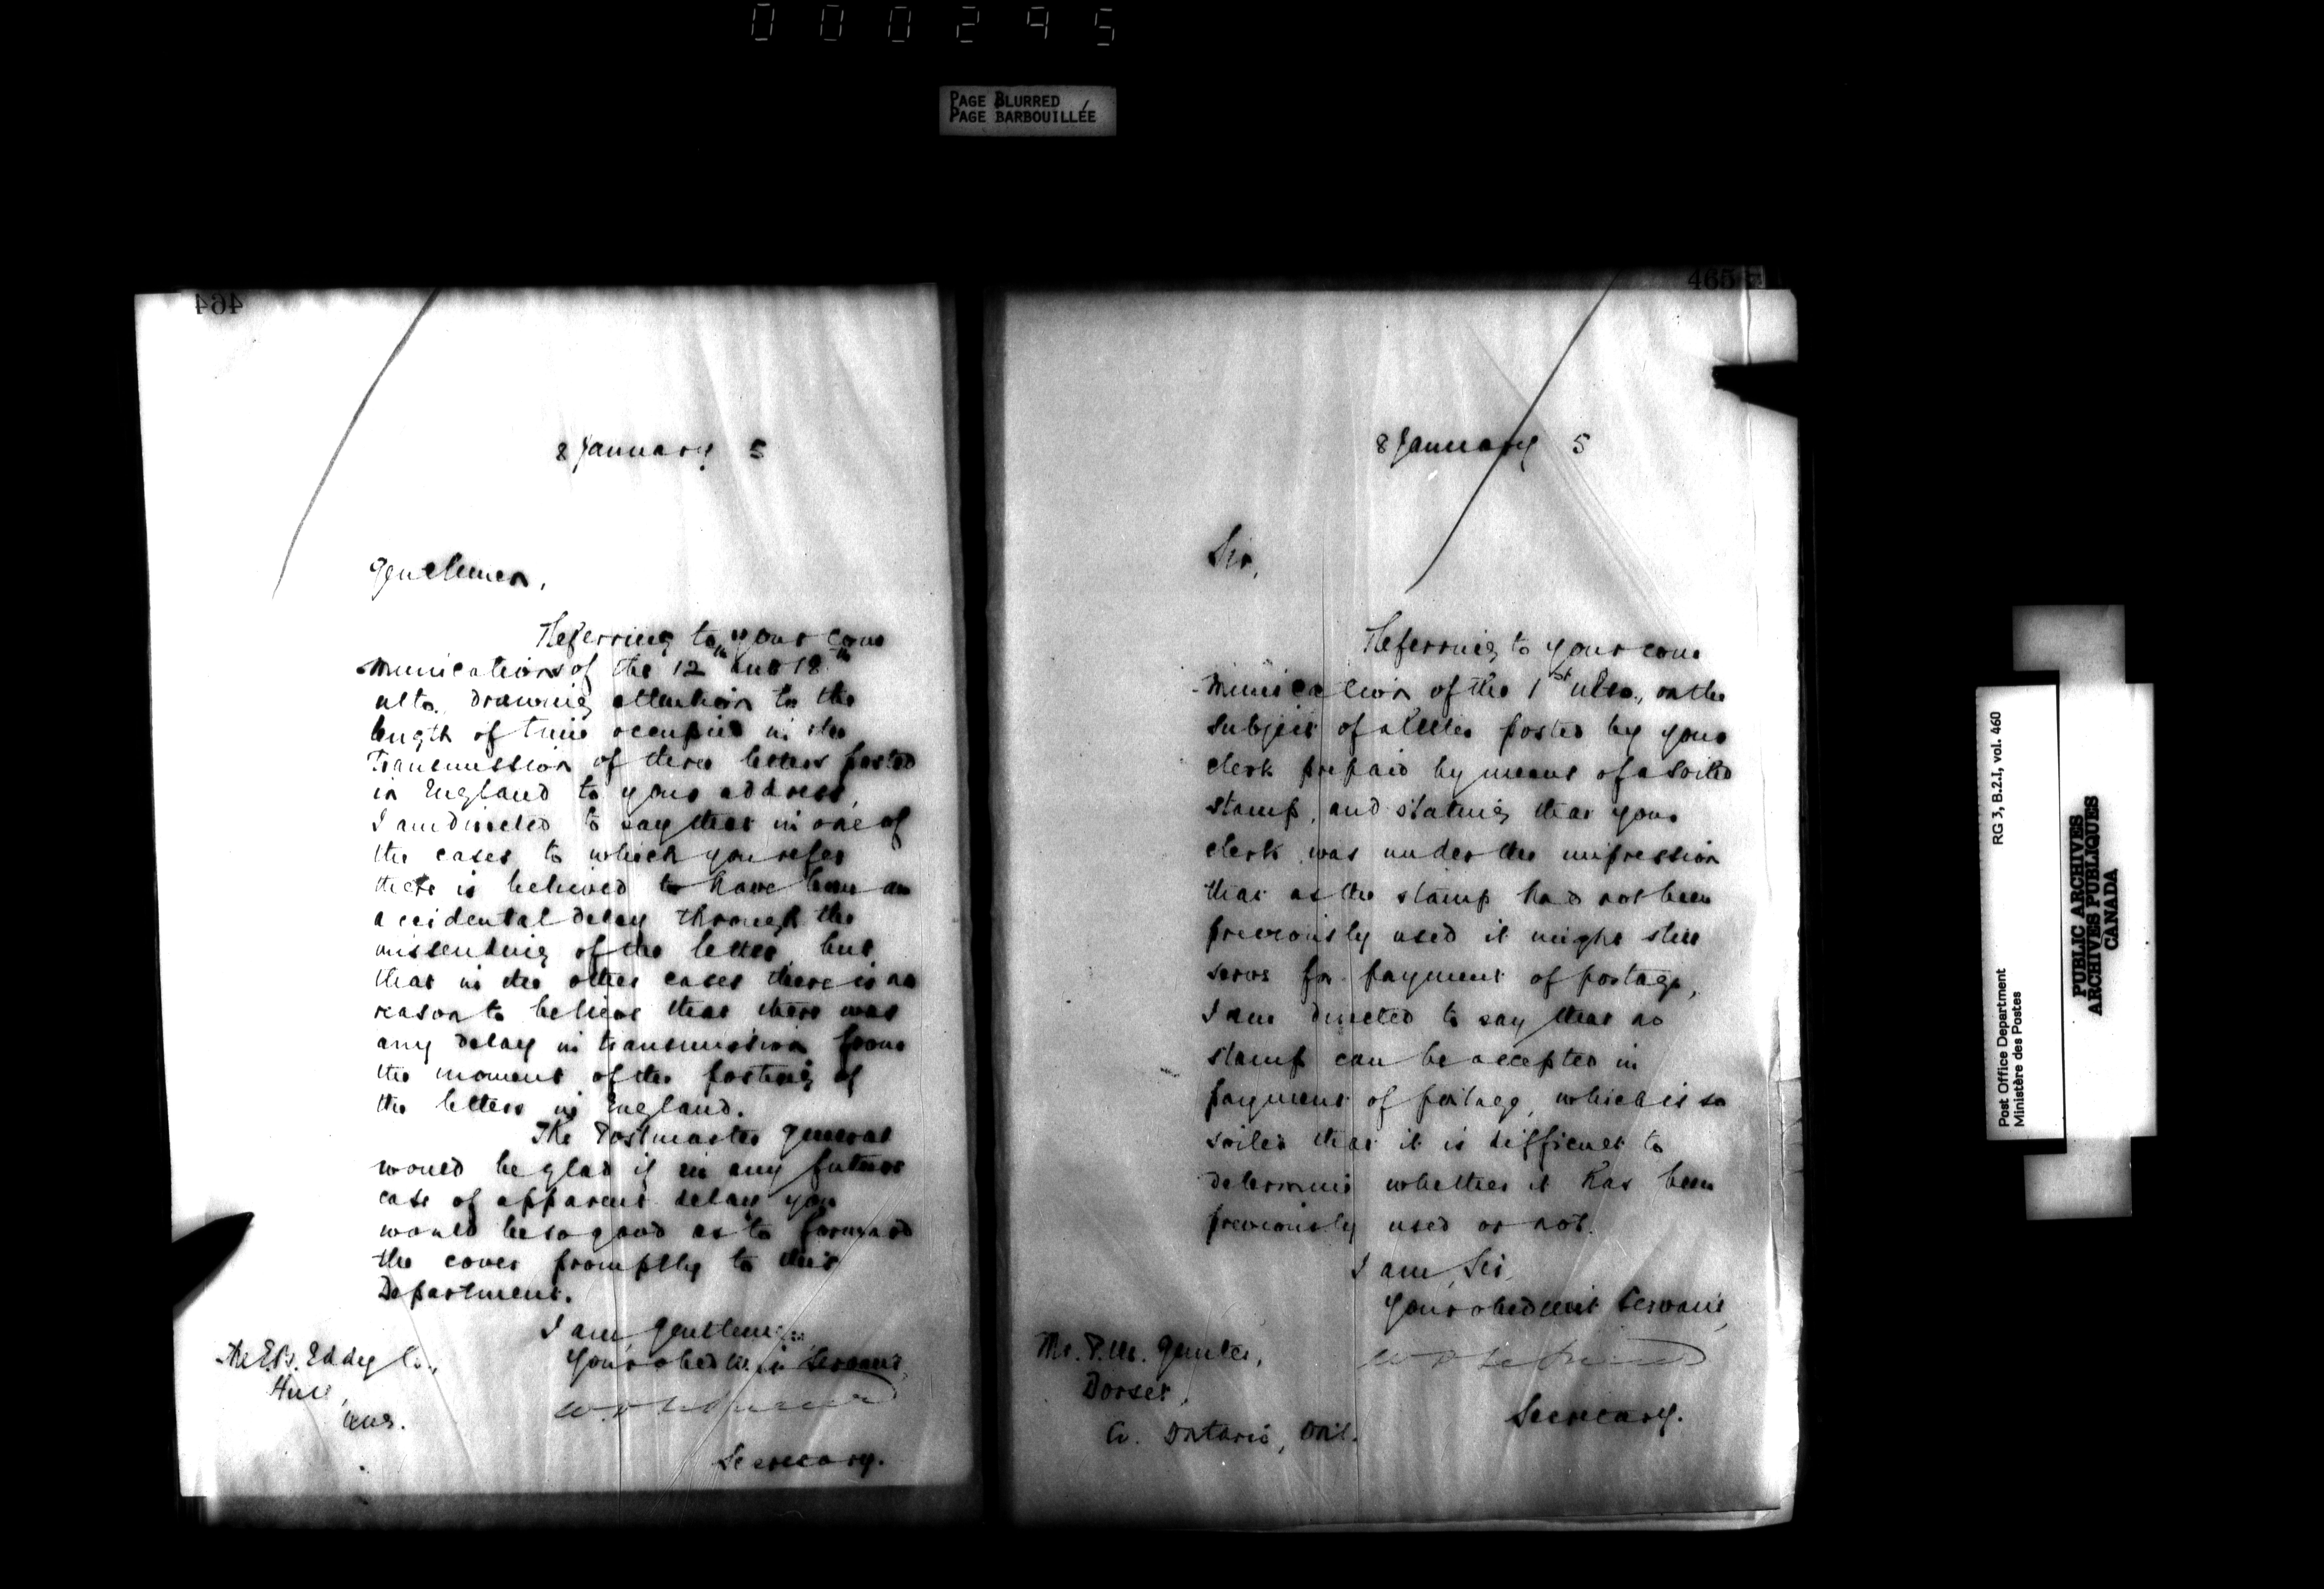 000295
PAGE BLURRED
PAGE BARBOUILLÉE
464
8 January 5
Gentlemen,
Referring to your com
munications of the 12th and 18th
ulto. drawing attention to the
length of time occupied in the
Transmission of three letters posted
in England to your address,
I am directed to say that in one of
the cases to which you refer
there is believed to have been an
accidental delay through the
missending of the letter, but
that in the other cases there is no
reason to believe that there was
any delay in transmission from
the moment of the posting of
the letters in England.
The Postmaster General
would be glad if in any future
case of apparent delay you
would be so good as to forward
the cover promptly to this
Department.
I am Gentlemen
Your obedient Servant
Secretary.
The E.B. Eddy Co.,
Hull,
Que.
465
8 January 5
Sir,
Referring to your com
munication of the 1st ulto., on the
subject of a letter posted by your
clerk prepaid by means of a soiled
stamp, and stating that your
clerk was under the impression
that as the stamp had not been
previously used it might still
serve for payment of postage,
I am directed to say that no
stamp can be accepted in
payment of postage, which is so
soiled that it is difficult to
determine whether it has been
previously used or not.
I am, Sir,
Your obedient Servant,
Secretary.
Mr. P.
Dorset,
Co. Ontario, Ont.
Post Office Department RG 3, B.2.I, vol. 460
Ministère des Postes
PUBLIC ARCHIVES
ARCHIVES PUBLIQUES
CANADA